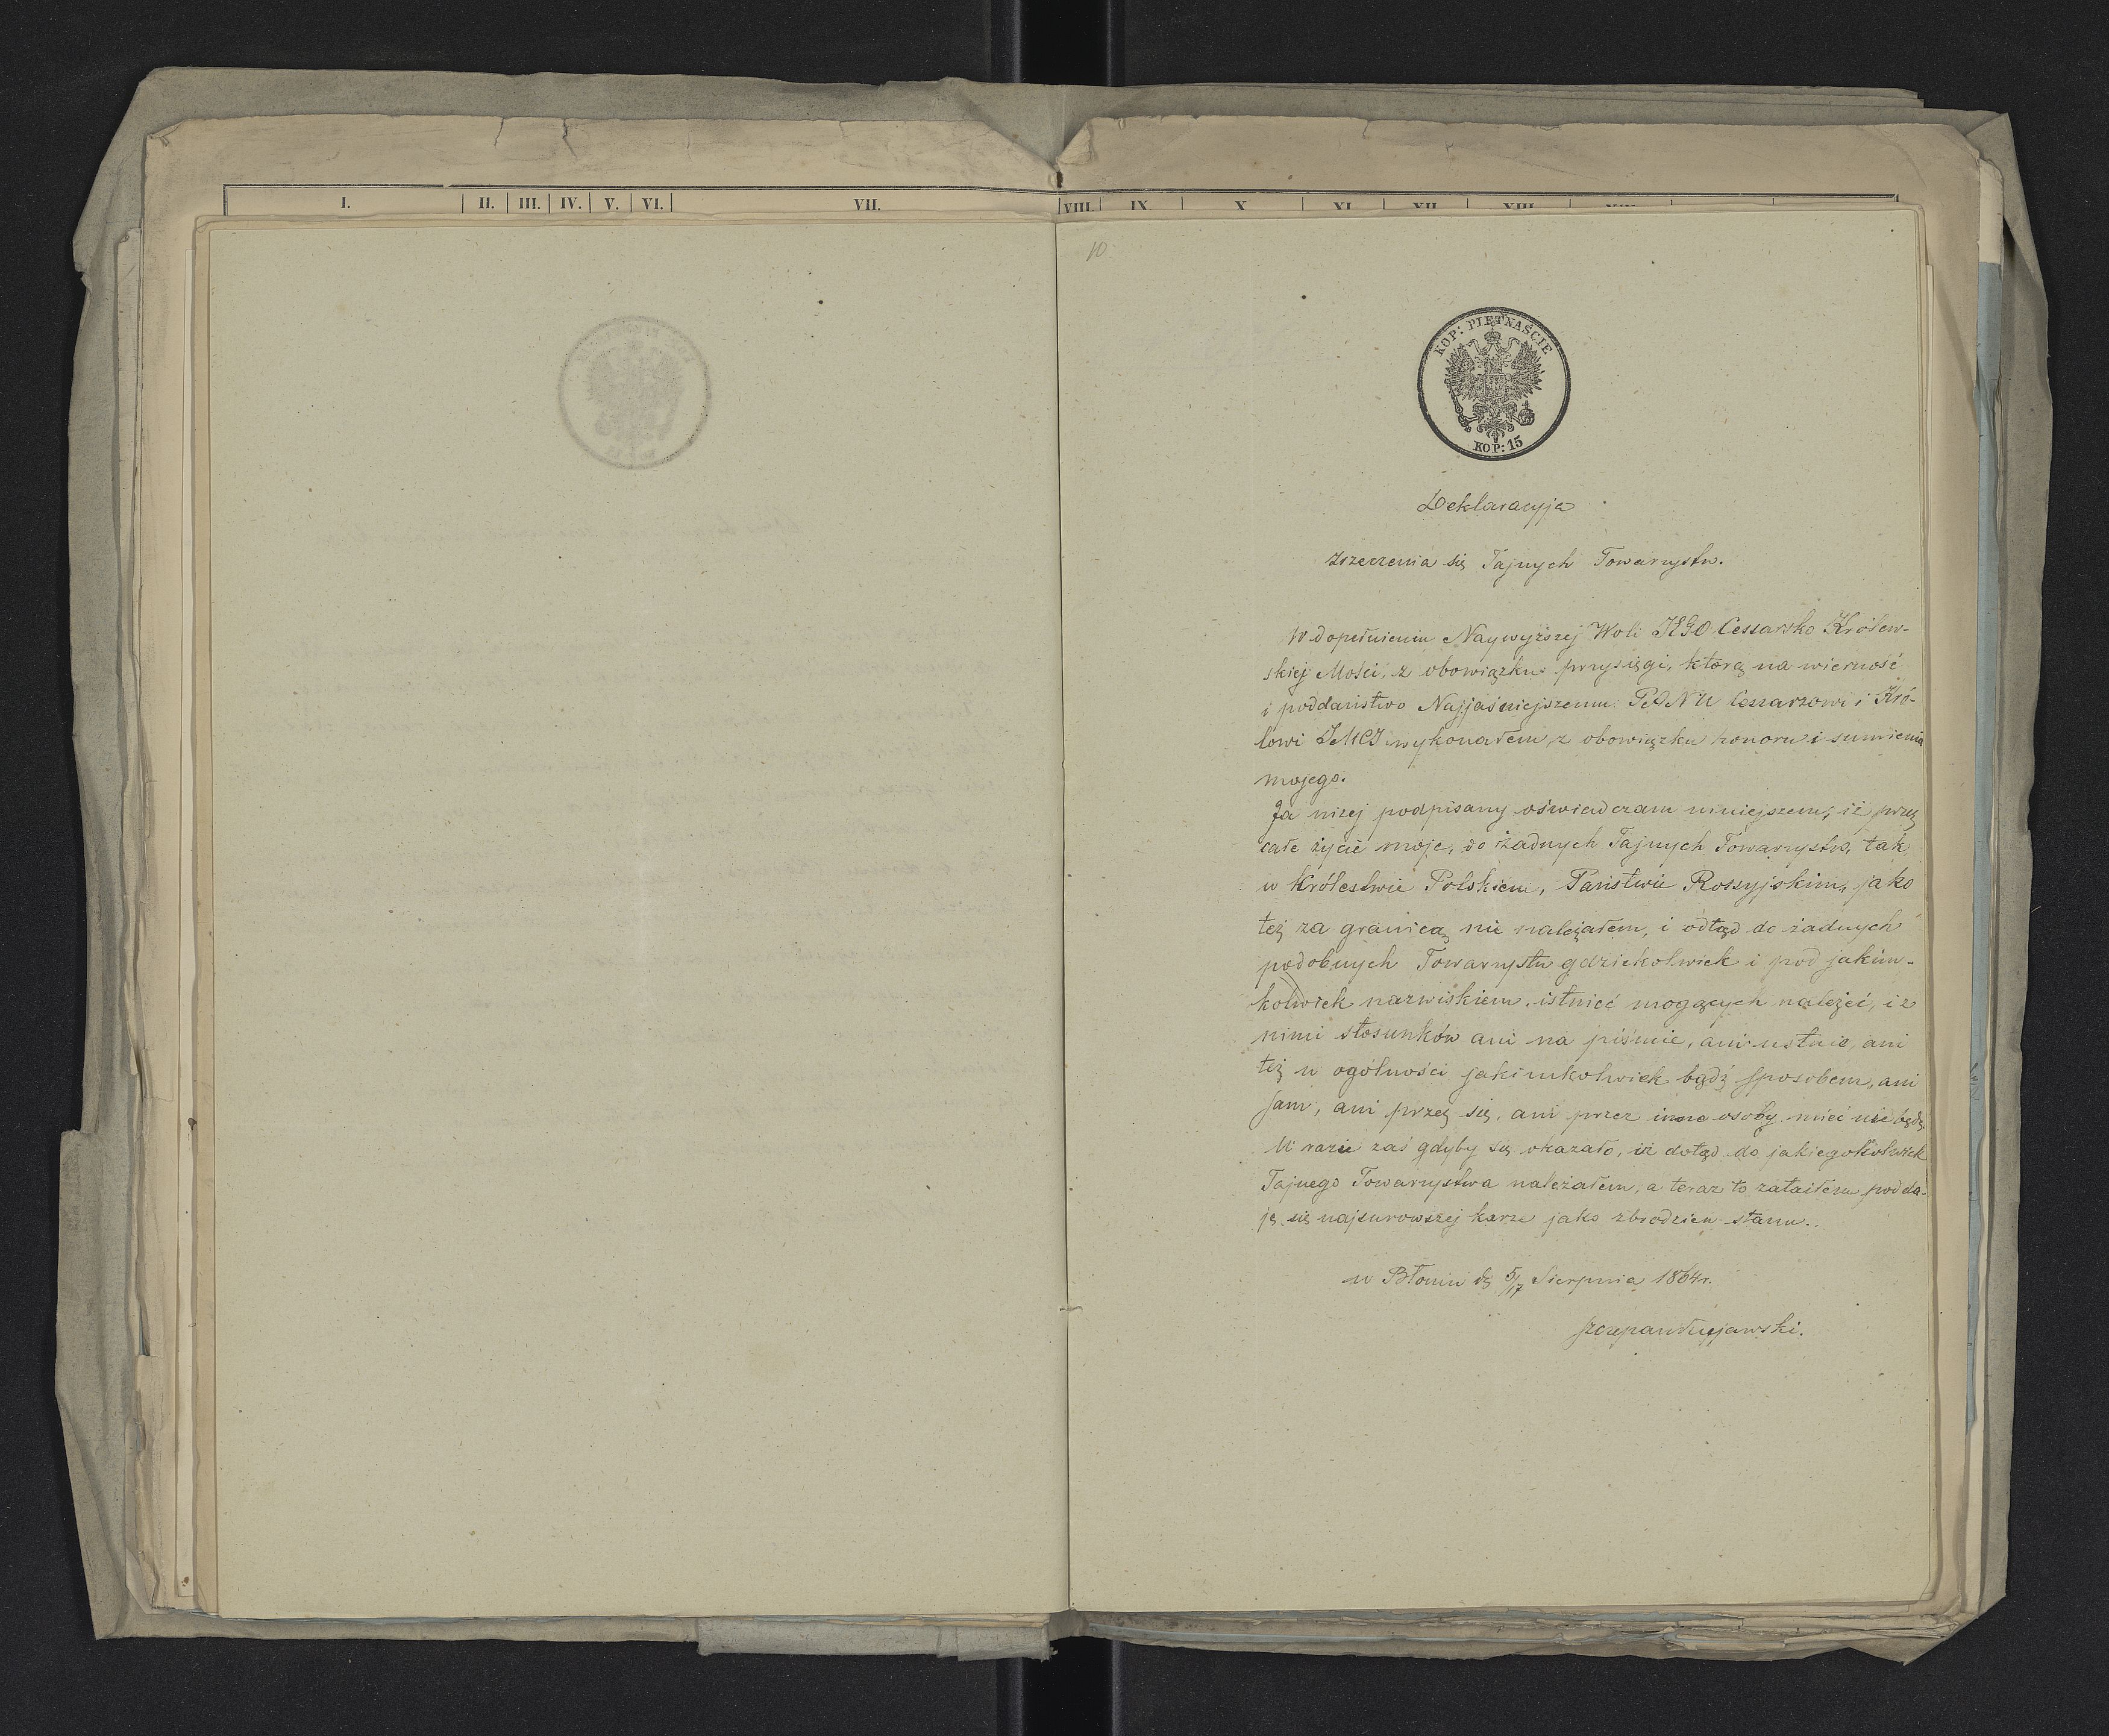 I. II. III. IV. V. VI. VII. VIII. IX. X. XI. XII. XIII.
10
KOP: PIĘTNAŚCIE
KOP: 15
Deklaracyja
zrzeczenia się Tajnych Towarzystw.
W dopełnieniu Naywyższej Woli JEGO Cessarsko Królew-
skiej Mości, z obowiązku przysięgi, którą na wierność
i poddaństwo Najjaśniejszemu PANU Cessarzowi i Kró-
lowi JMCI wykonałem, z obowiązku honoru i sumienia
mojego.
Ja niżej podpisany oświadczam niniejszem, iż przez
całe życie moje, do żadnych Tajnych Towarzystw, tak
w Królestwie Polskiem, Państwie Rossyjskim, jako
też za granicą nie należałem, i odtąd do żadnych
podobnych Towarzystw gdziekolwiek i pod jakim-
kolwiek nazwiskiem istnieć mogących należeć, i z
nimi stosunków ani na piśmie, ani ustnie, ani
też w ogólności jakimkolwiek bądź sposobem, ani
sam, ani przez się, ani przez inne osoby mieć nie będę,
W razie zaś gdyby się okazało, iż dotąd do jakiegokolwiek
Tajnego Towarzystwa należałem, a teraz to zataiłem, podda-
ję się najsurowszej karze jako zbrodzien stanu.
w Błoniu d. 5/17 Sierpnia 1864 r.
Szczepan